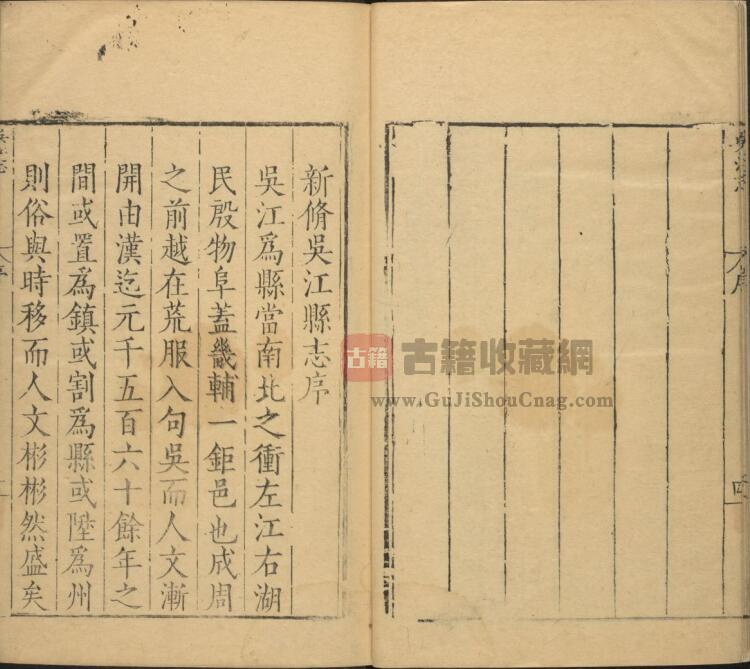 新脩吳江縣志序
吳江爲縣當南北之衝左江右湖
民殷物阜蓋畿輔一鉅邑也成周
之前越在荒服入句吳而人文漸
開由漢迄元千五百六十餘年之
間或置爲鎮或割爲縣或陞爲州
則俗與時移而人文彬彬然盛矣
古籍
古籍收藏網
www.GuJiShouCnag.com
序
四